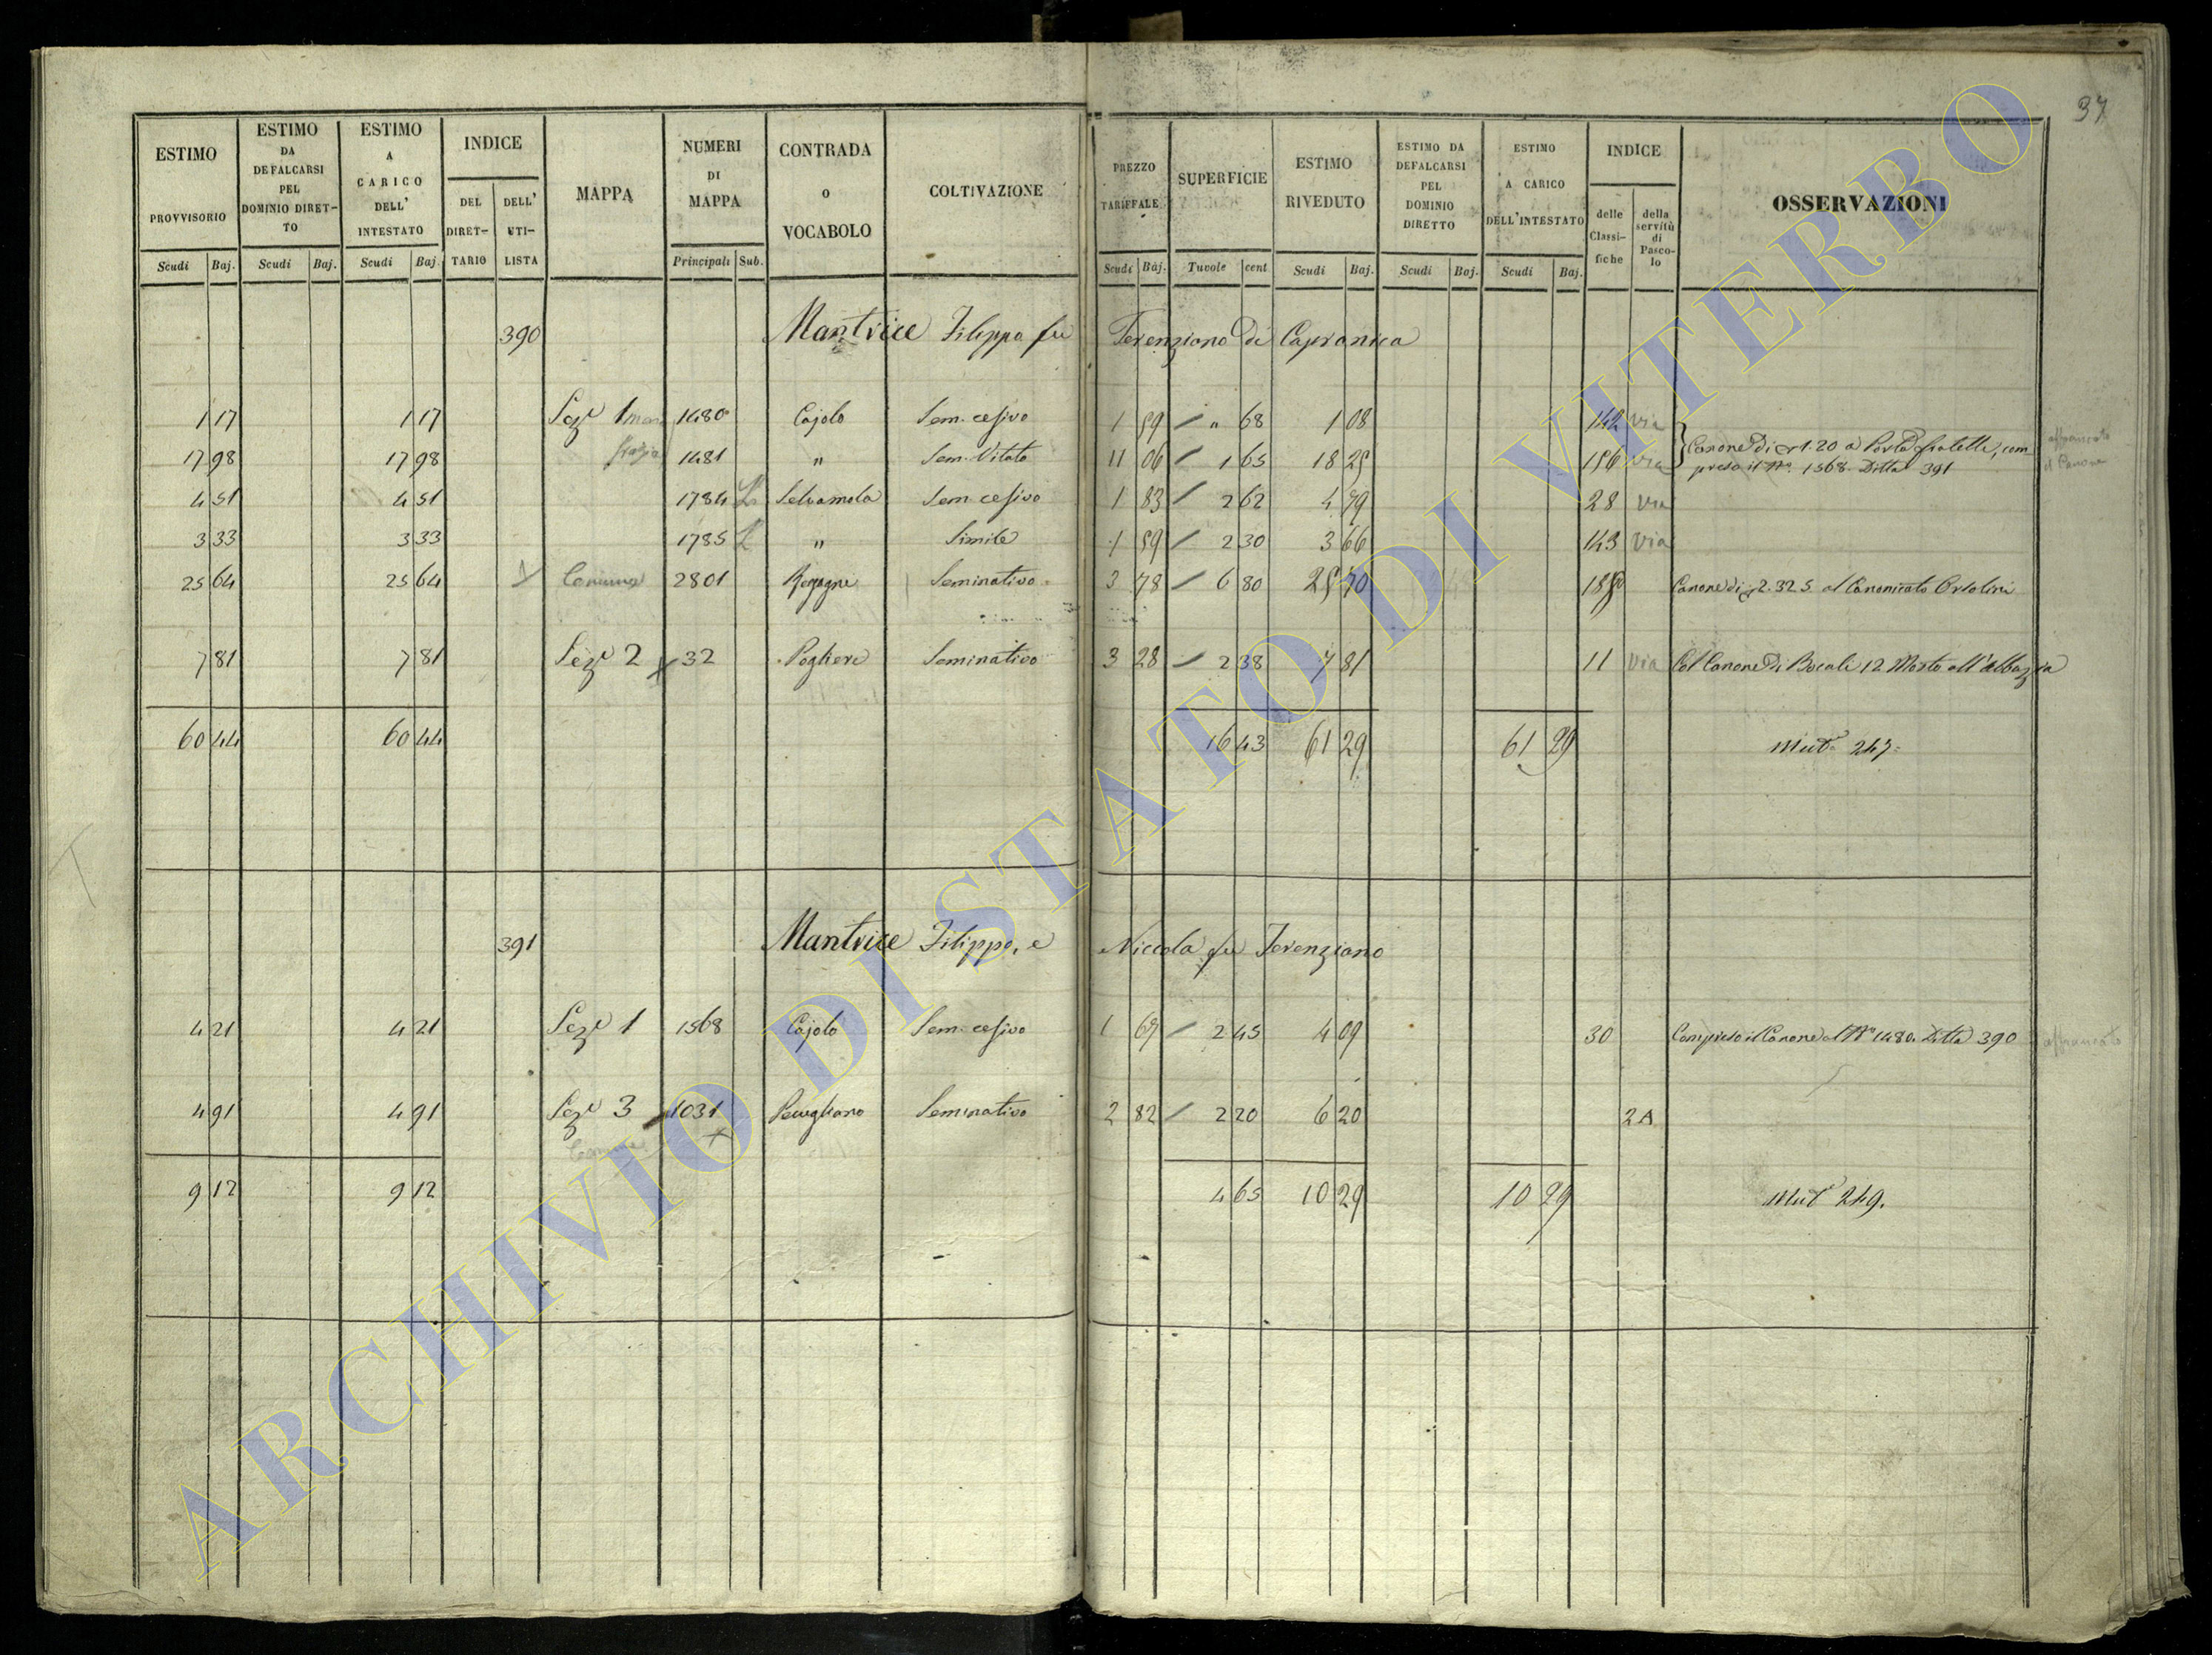 37
ESTIMO PROVVISORIO Scudi Baj.
ESTIMO DA DEFALCARSI PEL DOMINIO DIRETTO Scudi Baj.
ESTIMO A CARICO DELL' INTESTATO Scudi Baj.
INDICE DEL DIRETTARIO DELL' UTILISTA
MAPPA
NUMERI DI MAPPA Principali Sub.
CONTRADA O VOCABOLO
COLTIVAZIONE
PREZZO TARIFFALE Scudi Baj.
SUPERFICIE Tavole cent
ESTIMO RIVEDUTO Scudi Baj.
ESTIMO DA DEFALCARSI PEL DOMINIO DIRETTO Scudi Baj.
ESTIMO A CARICO DELL'INTESTATO Scudi Baj.
INDICE delle Classifiche della servitù di Pascolo
OSSERVAZIONI
390 Mantrice Filippo fu Terenziano di Capranica
1 17 1 17 Sezе 1 1480 Cajolo Sem. cesivo 1 59 " 68 1 08 142 via
17 98 17 98 1481 " Sem. Vitato 11 06 1 65 18 25 156 via Canone di 1.20 a Porta fratelli, compreso il N°. 1568 Ditta 391
affrancato il Canone
4 51 4 51 1784 Selvamola Sem. cesivo 1 83 2 62 4 79 28 via
3 33 3 33 1785 " Simile 1 59 2 30 3 66 143 via
25 64 25 64 2801 Seminativo 3 78 6 80 25 70 Canone di 2.32.5 al Canonicato
7 81 7 81 Seze 2 32 Pogliere Seminativo 3 28 2 38 7 81 11 via Col Canone di Bocali 12 Mosto all'Abbazia
60 44 60 44 16 43 61 29 61 29 Mut. 247
391 Mantrice Filippo, e Niccola fu Terenziano
4 21 4 21 Seze 1 1568 Cajolo Sem. cesivo 1 67 2 45 4 09 30 Compreso il Canone al N° 1480. Ditta 390 affrancato
4 91 4 91 Seze 3 1031 Seminativo 2 82 2 20 6 20 2A
Comune
9 12 9 12 4 65 10 29 10 29 Mut. 249.
ARCHIVIO DI STATO DI VITERBO